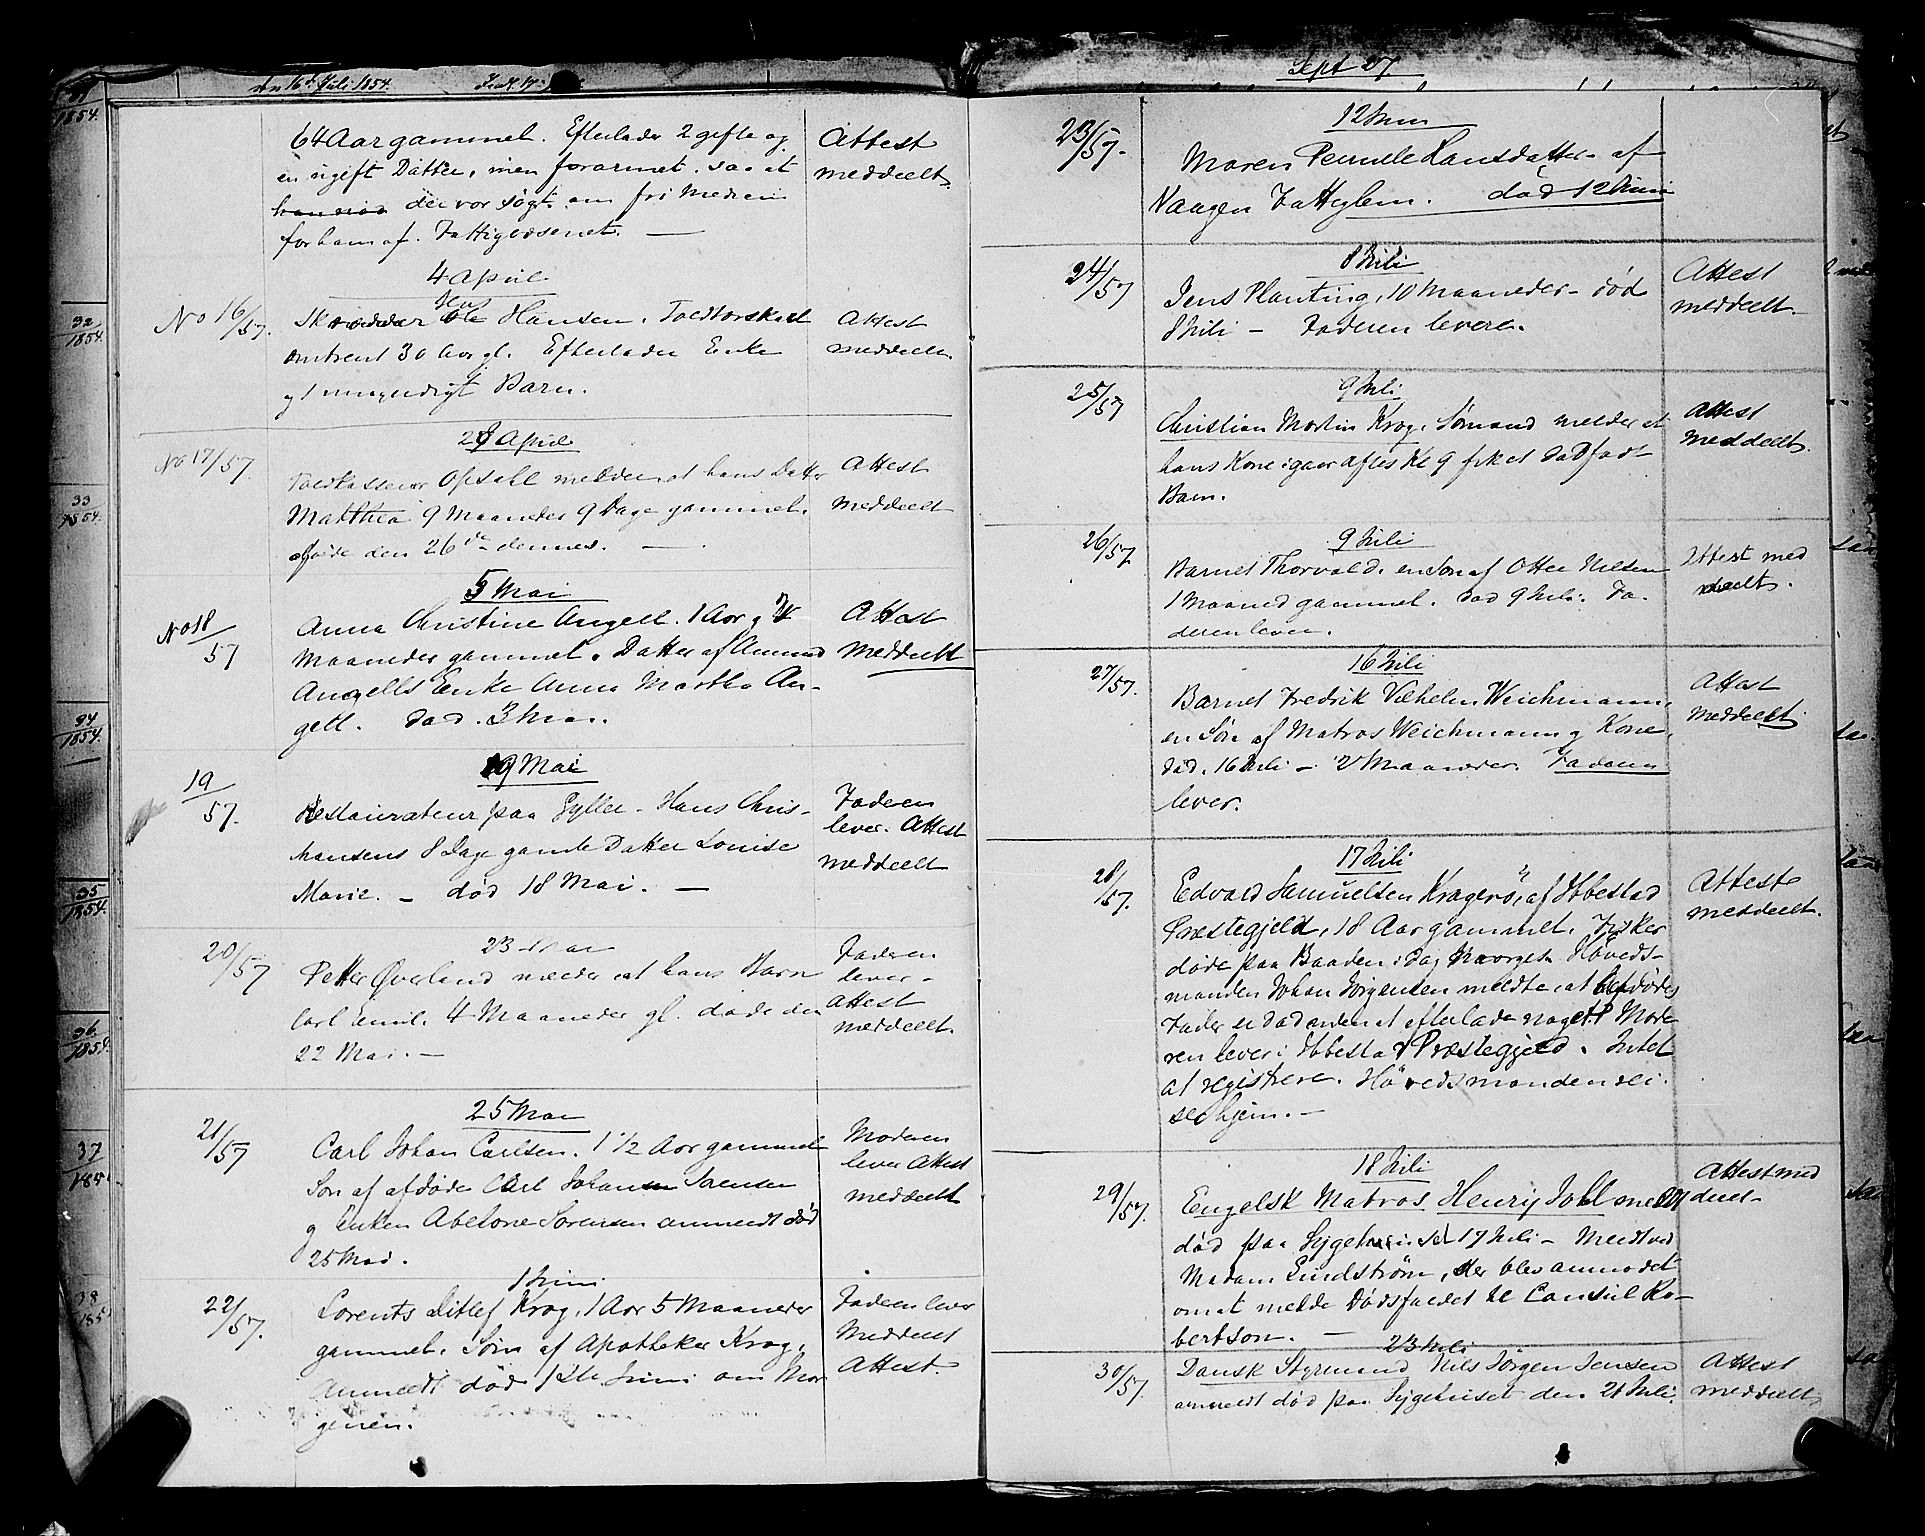 den 16de Juli 1854.
64 Aar gammel. Efterlader 2 gifte og
en ugift Datter, men forarmet. saa at
der var søgt om fri Medicin
for ham af Fattigvæsenet. —
Attest
meddeelt.
4 April
No 16/57.
Jens
Skrædder Ole Hansen. Toldtorsked
omtrent 30 Aar gl. Efterlader Enke
og 1 umyndigt Barn.
Attest
meddeelt.
28 April
No 17/57.
Toldkasserer Opdahl melder at hans Datter
Matthea 9 Maaneder 9 Dage gammel.
døde den 26de dennes. —
Attest
meddeelt
5 Mai
No 18/57
Anna Christine Angell. 1 Aar og 4
Maaneder gammel. Datter af Amund
Angells Enke Anna Martha An-
gell. død 3 Mai.
Attest
meddeelt
19 Mai
19/57.
Restaurateur paa Gyller - Hans Chris-
tiansens 8 Dage gamle Datter Louise
Marie. — død 18 Mai. —
Faderen
lever. Attest
meddeelt
23 Mai
20/57
Petter Øverland melder at hans Barn
Carl Emil. 4 Maaneder gl. døde den
22 Mai. —
Faderen
lever -
Attest
meddeelt.
25 Mai
21/57
Carl Johan Carlsen. 1 1/2 Aar gammel
Søn af afdøde Carl Johan Sørensen
og Enken Abelone Sørensen anmeldt død
25 Mai.
Moderen
lever Attest
meddeelt
1 Juni
22/57.
Lorents Ditlef Krog, 1 Aar 5 Maaneder
gammel. Søn af Apotheker Krog.
Anmeldt død 1ste Juni om Mor
genen.
Faderen lever
Meddeelt
Attest.
Sept 27
12 Juni
23/57.
Maren Pernele Hansdatter af
Vaagen Fattiglem. død 12 Juni
8 Juli
24/57
Jens Planting, 10 Maaneder - død
8 Juli - Faderen lever.
Attest
meddeelt.
9 Juli
25/57
Christian Martin Krog. Sømand melder at
hans Kone igaar aftes Kl 9 fik et dødfødt
Barn.
Attest
meddeelt.
9 Juli
26/57
Barnet Thorvald, en Søn af Otter Nilsen
1 Maaned gammel. død 9 Juli. Fa-
deren lever.
Attest med
deelt.
16 Juli
27/57.
Barnet Fredrik Vilhelm Weichmann,
en Søn af Matros Weichmann og Kone,
død 16 Juli - 2 Maaneder. Faderen
lever.
Attest
meddeelt
17 Juli
28/57.
Edvard Samuelsen Kragerø, af Ibbestad
Præstegjeld, 18 Aar gammel. Fisker
døde paa Baaden i Dag Morges. Høveds-
manden Johan Jørgensen meldte, at afdødes
Fader er død uden at efterlade noget. Mode
ren lever i Ibbestad Præstegjeld. Intet
at registrere. Høvedsmanden rei-
ser hjem. —
Attest
meddeelt.
18 Juli
29/57.
Engelsk Matros Henry Johl meldt
død paa Sygehuset 17 Juli - Meldt ved
Madam Lindstrøm, der blev anmodet
om at melde Dødsfaldet til Consul Ro-
bertson. —
Attest med
deelt.
23 Juli
30/57.
Dansk Styrmand Nils Jørgen Jensen
anmeldt død paa Sygehuset den 21 Juli.
Attest
meddeelt
32
1854.
33
1854.
34
1854.
35
1854.
36
1854
37
185
38
185